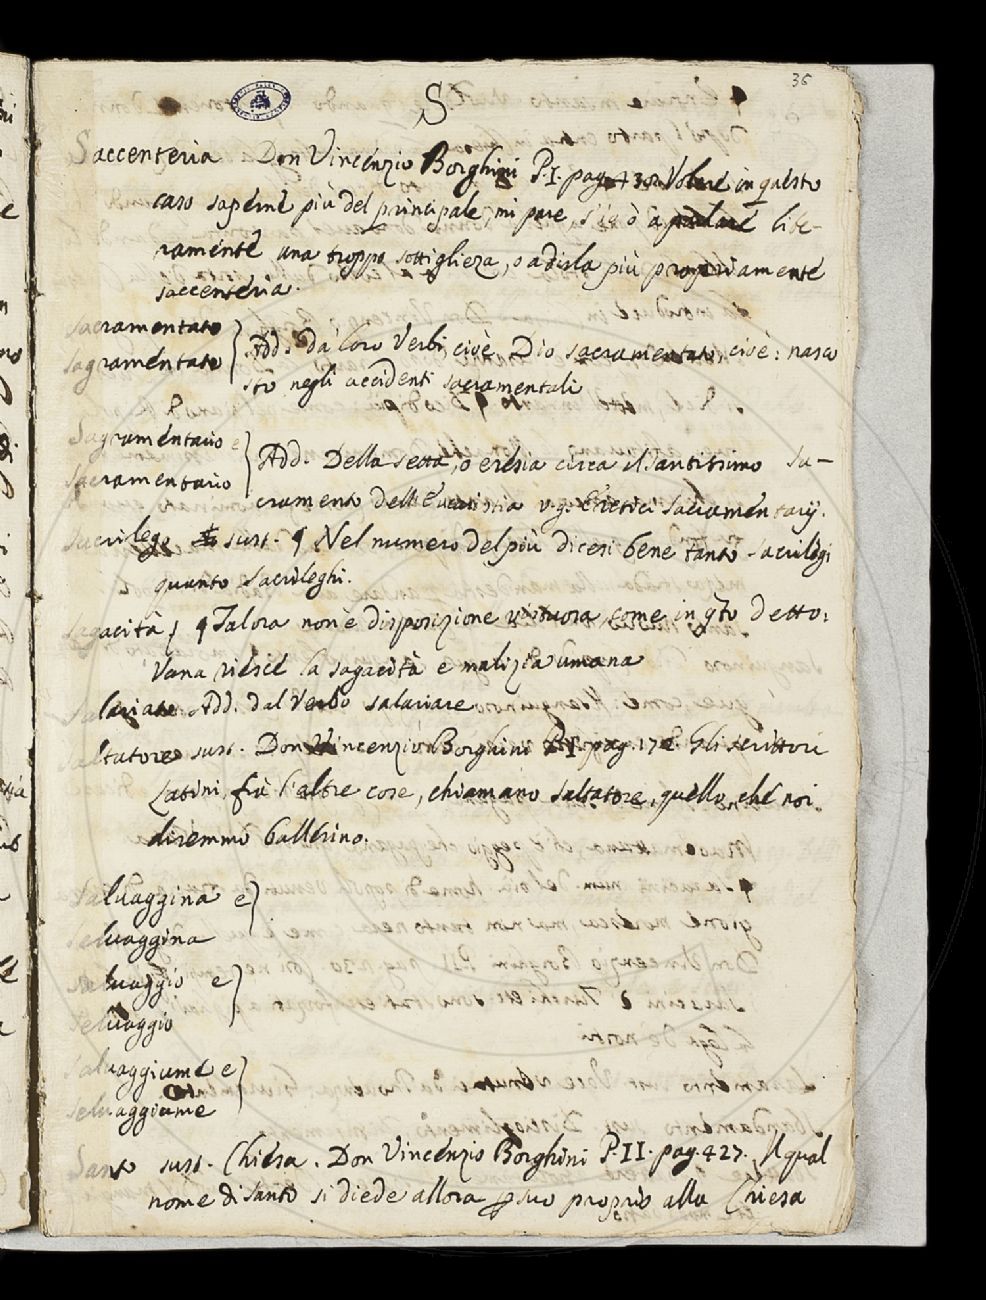 36
S
Saccenteria Don Vincenzio Borghini P.I. pag. 430. Volere in questo
caso saperne più del principale, mi pare, s'io ò a parlare libe-
ramente una troppo sottiglieza, o a dirla più propriamente
saccenteria.
Sacramentato
Sagramentato } Add. da loro Verbi, cioè Dio sacramentato, cioè: nasco
sto negli accidenti sacramentali
Sagramentario e
Sacramentario } Add. Della setta, o eresia circa il Santissimo Sa-
cramento dell'Eucaristia v.g. Eretici Sacramentarij.
Sacrilego sust. ¶ Nel numero del più dicesi bene tanto sacrilegi
quanto sacrileghi.
Sagacità, ¶ Talora non è disposizione virtuosa come in q̃to detto:
Vana riesce la sagacità e malizia umana
Salariato Add. dal Verbo salariare
Saltatore sust. Don Vincenzio Borghini P.I. pag. 172. Gli scrittori
Latini, frà l'altre cose, chiamano saltatore, quello, che noi
diremmo ballerino.
Salvaggina e }
Selvaggina
Salvaggio e }
Selvaggio
Salvaggiume e }
Selvaggiume
Santo sust. Chiesa. Don Vincenzio Borghini P.II. pag. 427. Il qual
nome di Santo si diede allora p suo proprio alla Chiesa